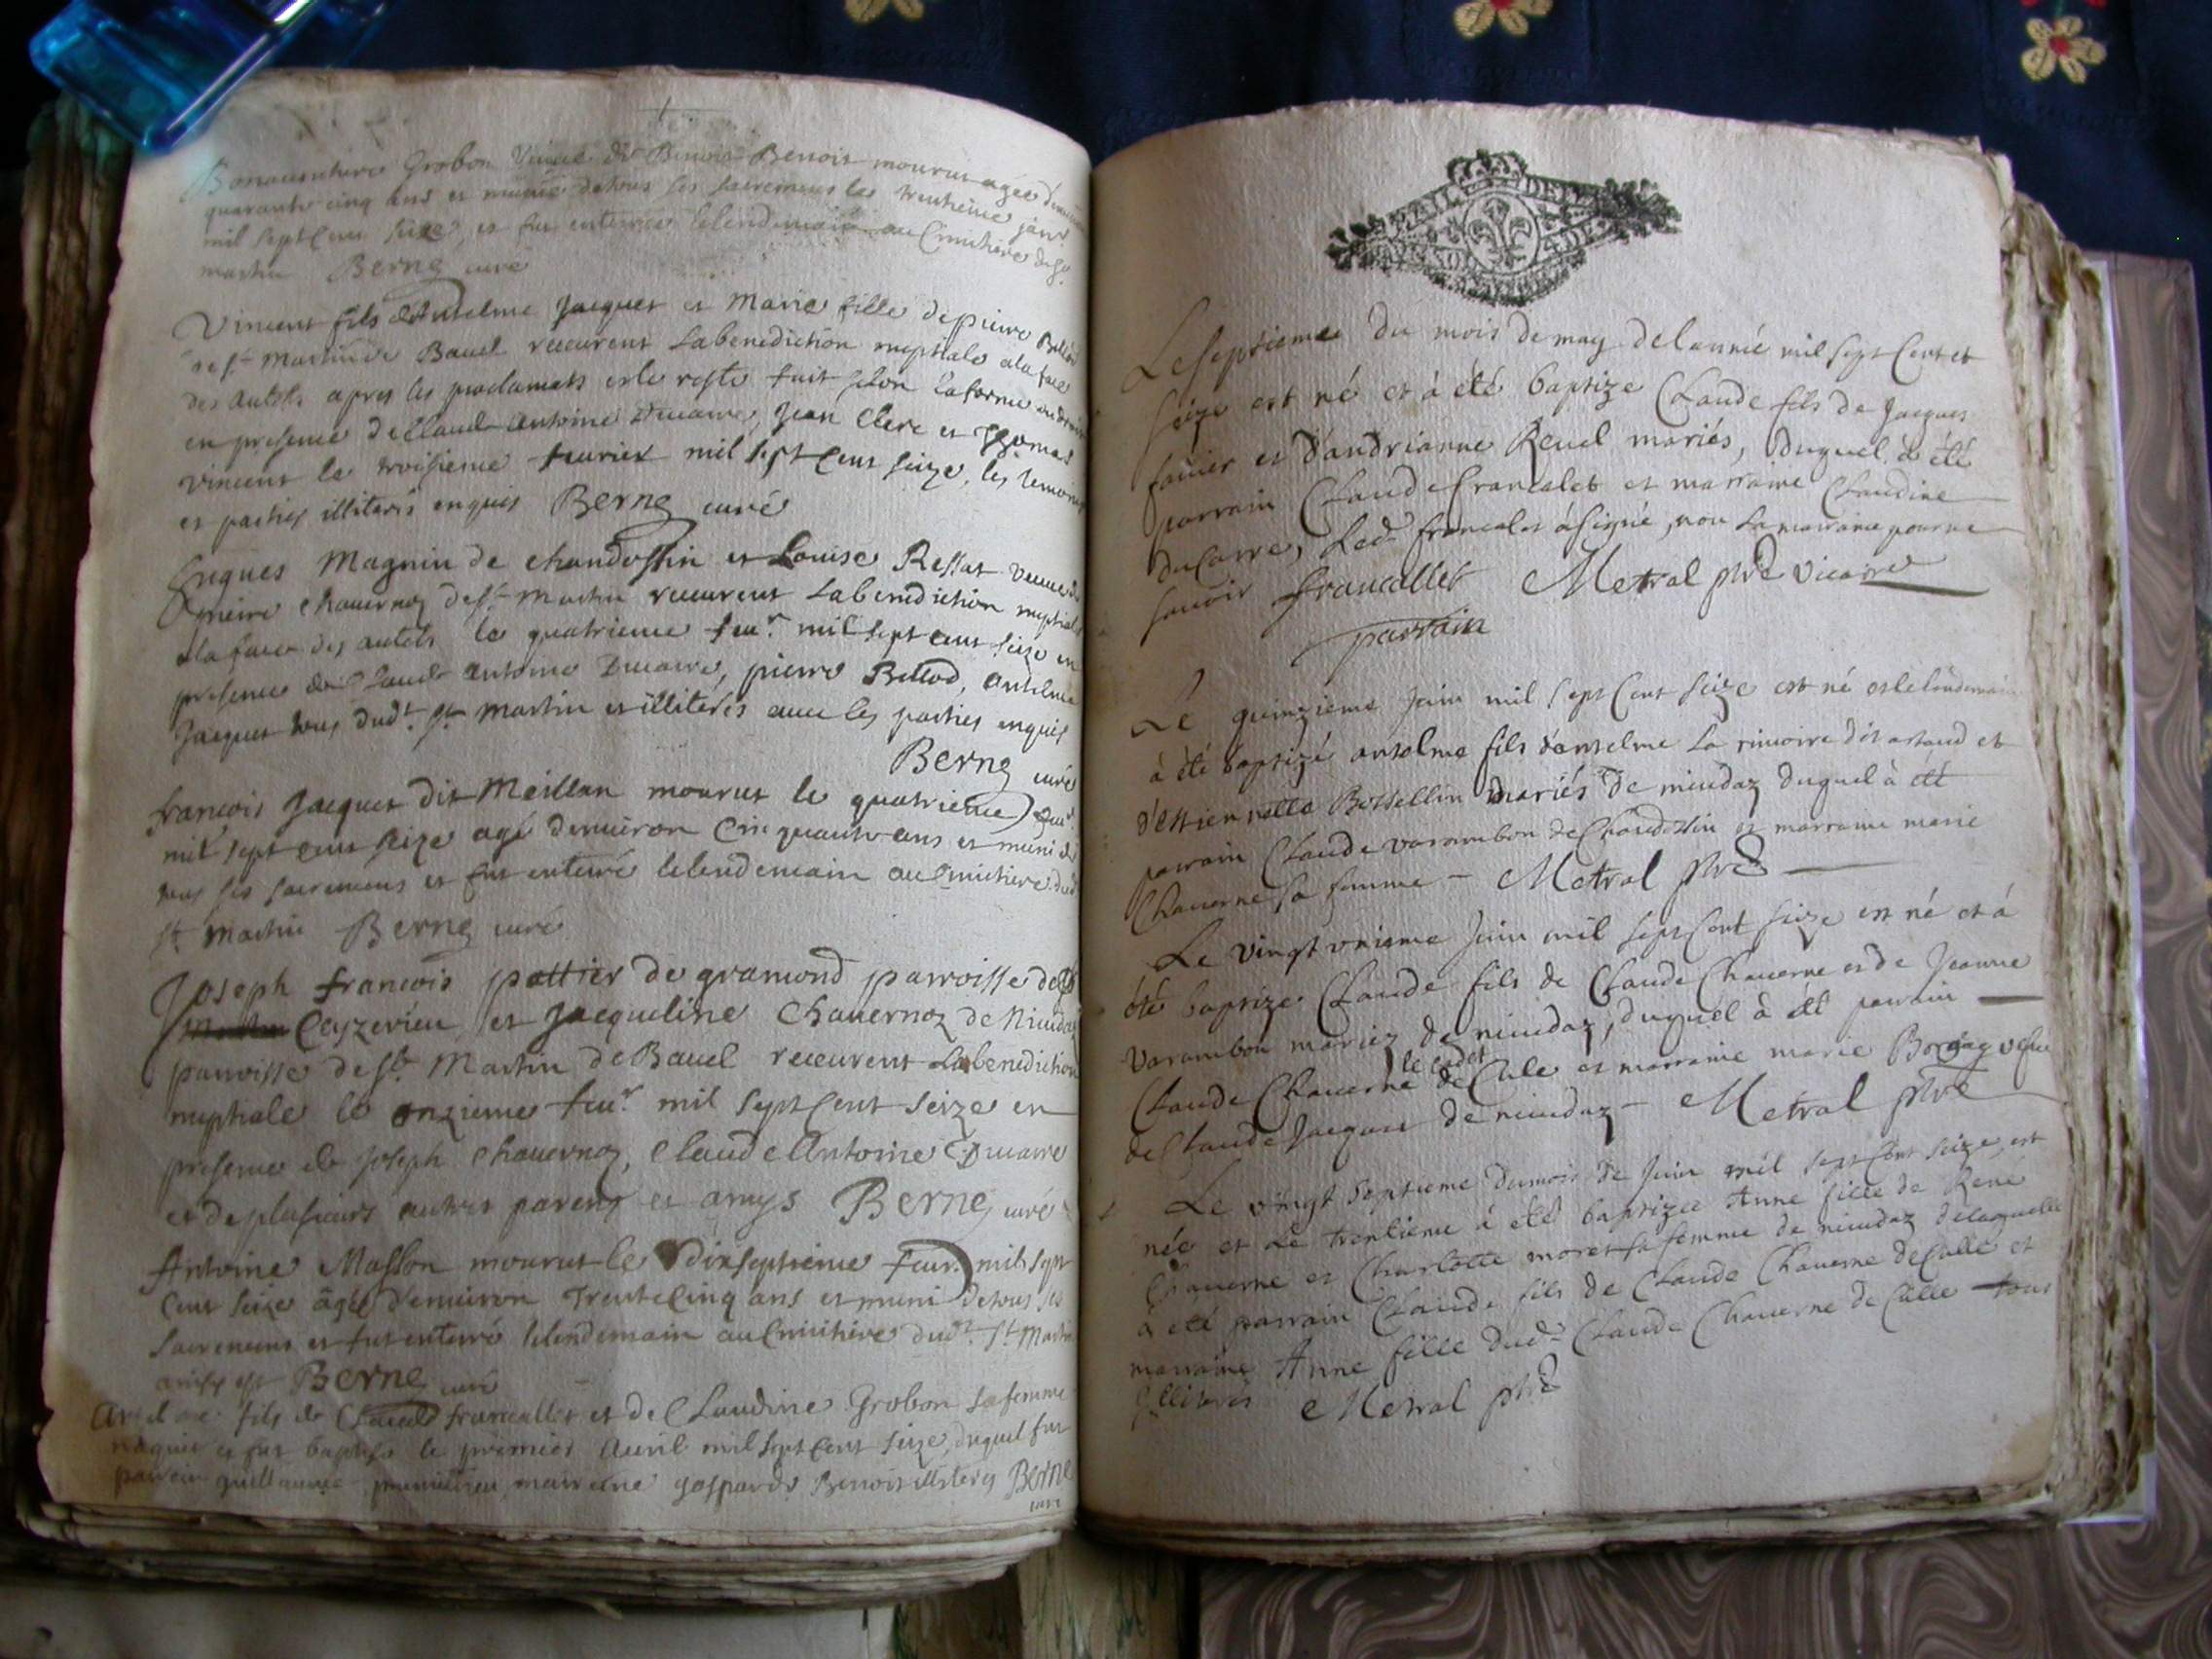 Bonauenture Grobon Veuue de Benoit mourut agée
quarante cinq ans et munie detous ses sacremens le trentieme janr
mil sept Cent seize, et fut enterrée lelendemain au Cimitiere de St
martin Berne curé
Vincent fils d'Antelme Jacquet et Marie fille depierre
de st Martin de Bauel receurent Labenediction nuptiale alaface
des Autels apres les proclamats et le reste fait selon la forme
en presence de Claude Antoine Ducarre, Jean Clerc et Thomas
vincent le troisieme feurier mil sept Cent seize, les temoins
et parties illiterés enquis Berne curé
Magnin de chandossin et Louise Ressat veuue de
pierre Chauernoz de st Martin receurent Labenediction nuptiale
ala face des autels le quatrieme feur mil sept cent seize en
presence de Claude Antoine Ducarre, pierre Billod, Antelme
Jacquet tous dudt st Martin et illiterés auec les parties enquis
Berne curé
francois Jacquet dit Meillan mourut le quatrieme feur
mil sept cent seize agé denuiron Cinquante ans et muni de
tous ses sacremens et fut enterré lelendemain au Cimitiere dud
st Martin Berne curé
Joseph francois pottier de gramond parroisse de
Ceyzerieu, et Jacqueline Chauernoz de Niudaz
parroisse de st Martin de Bauel receurent Labenediction
nuptiale le onzieme feur mil sept Cent seize en
presence de Joseph Chauernoz, Claude Antoine Ducarre
et deplusieurs autres parens et amys Berne curé
Antoine Masson mourut le dixseptieme feur mil sept
Cent seize âgé d'enuiron Trente Cinq ans et muni detous ses
sacremens et fut enterré lelendemain au Cimitiere dudt st Martin
Berne curé
fils de Claude francallet et de Claudine Grobon sa femme
naquit et fut baptisé le premier Auril mil sept Cent seize, duquel fut
parrain guillaume marraine gasparde Benoit illiterés Berne
curé
Le septieme du mois de may de l'année mil sept Cent et
seize est né et à été baptize Claude fils de Jacques
fauier et d'andrianne Reuel mariés, duquel à été
parrain Claude francalet et marraine Claudine
ducarre, Led. francalet à signé, non la marraine pour ne
sauoir francallet Metral ptre vicaire
parrain
Le quinzieme Juin mil sept Cent seize est né et le landemain
à été baptizé antelme fils d'antelme la rinoire dit artaud et
d'estiennette Bottellin mariés de niudaz duquel à été
parrain Claude varambon de Chandossin et marraine marie
Chauerne sa femme – Metral ptre
Le vingt vnieme Juin mil sept Cent seize est né et à
été baptize Claude fils de Claude Chauerne et de Jeanne
varambon mariez de niudaz, duquel à été parrain
le cadet
Claude Chauerne de Cule et marraine marie Borgey vefue
de Claude Jacquet de niudaz – Metral ptre
Le vingt septieme du mois de Juin mil sept Cent seize, est
née et le trentieme à eté baptizée Anne fille de René
Chauerne et Charlotte moret sa femme de niudaz delaquelle
à eté parrain Claude fils de Claude Chauerne de Culle et
marraine Anne fille dud. Claude Chauerne de Culle tous
Illiterés Metral ptre